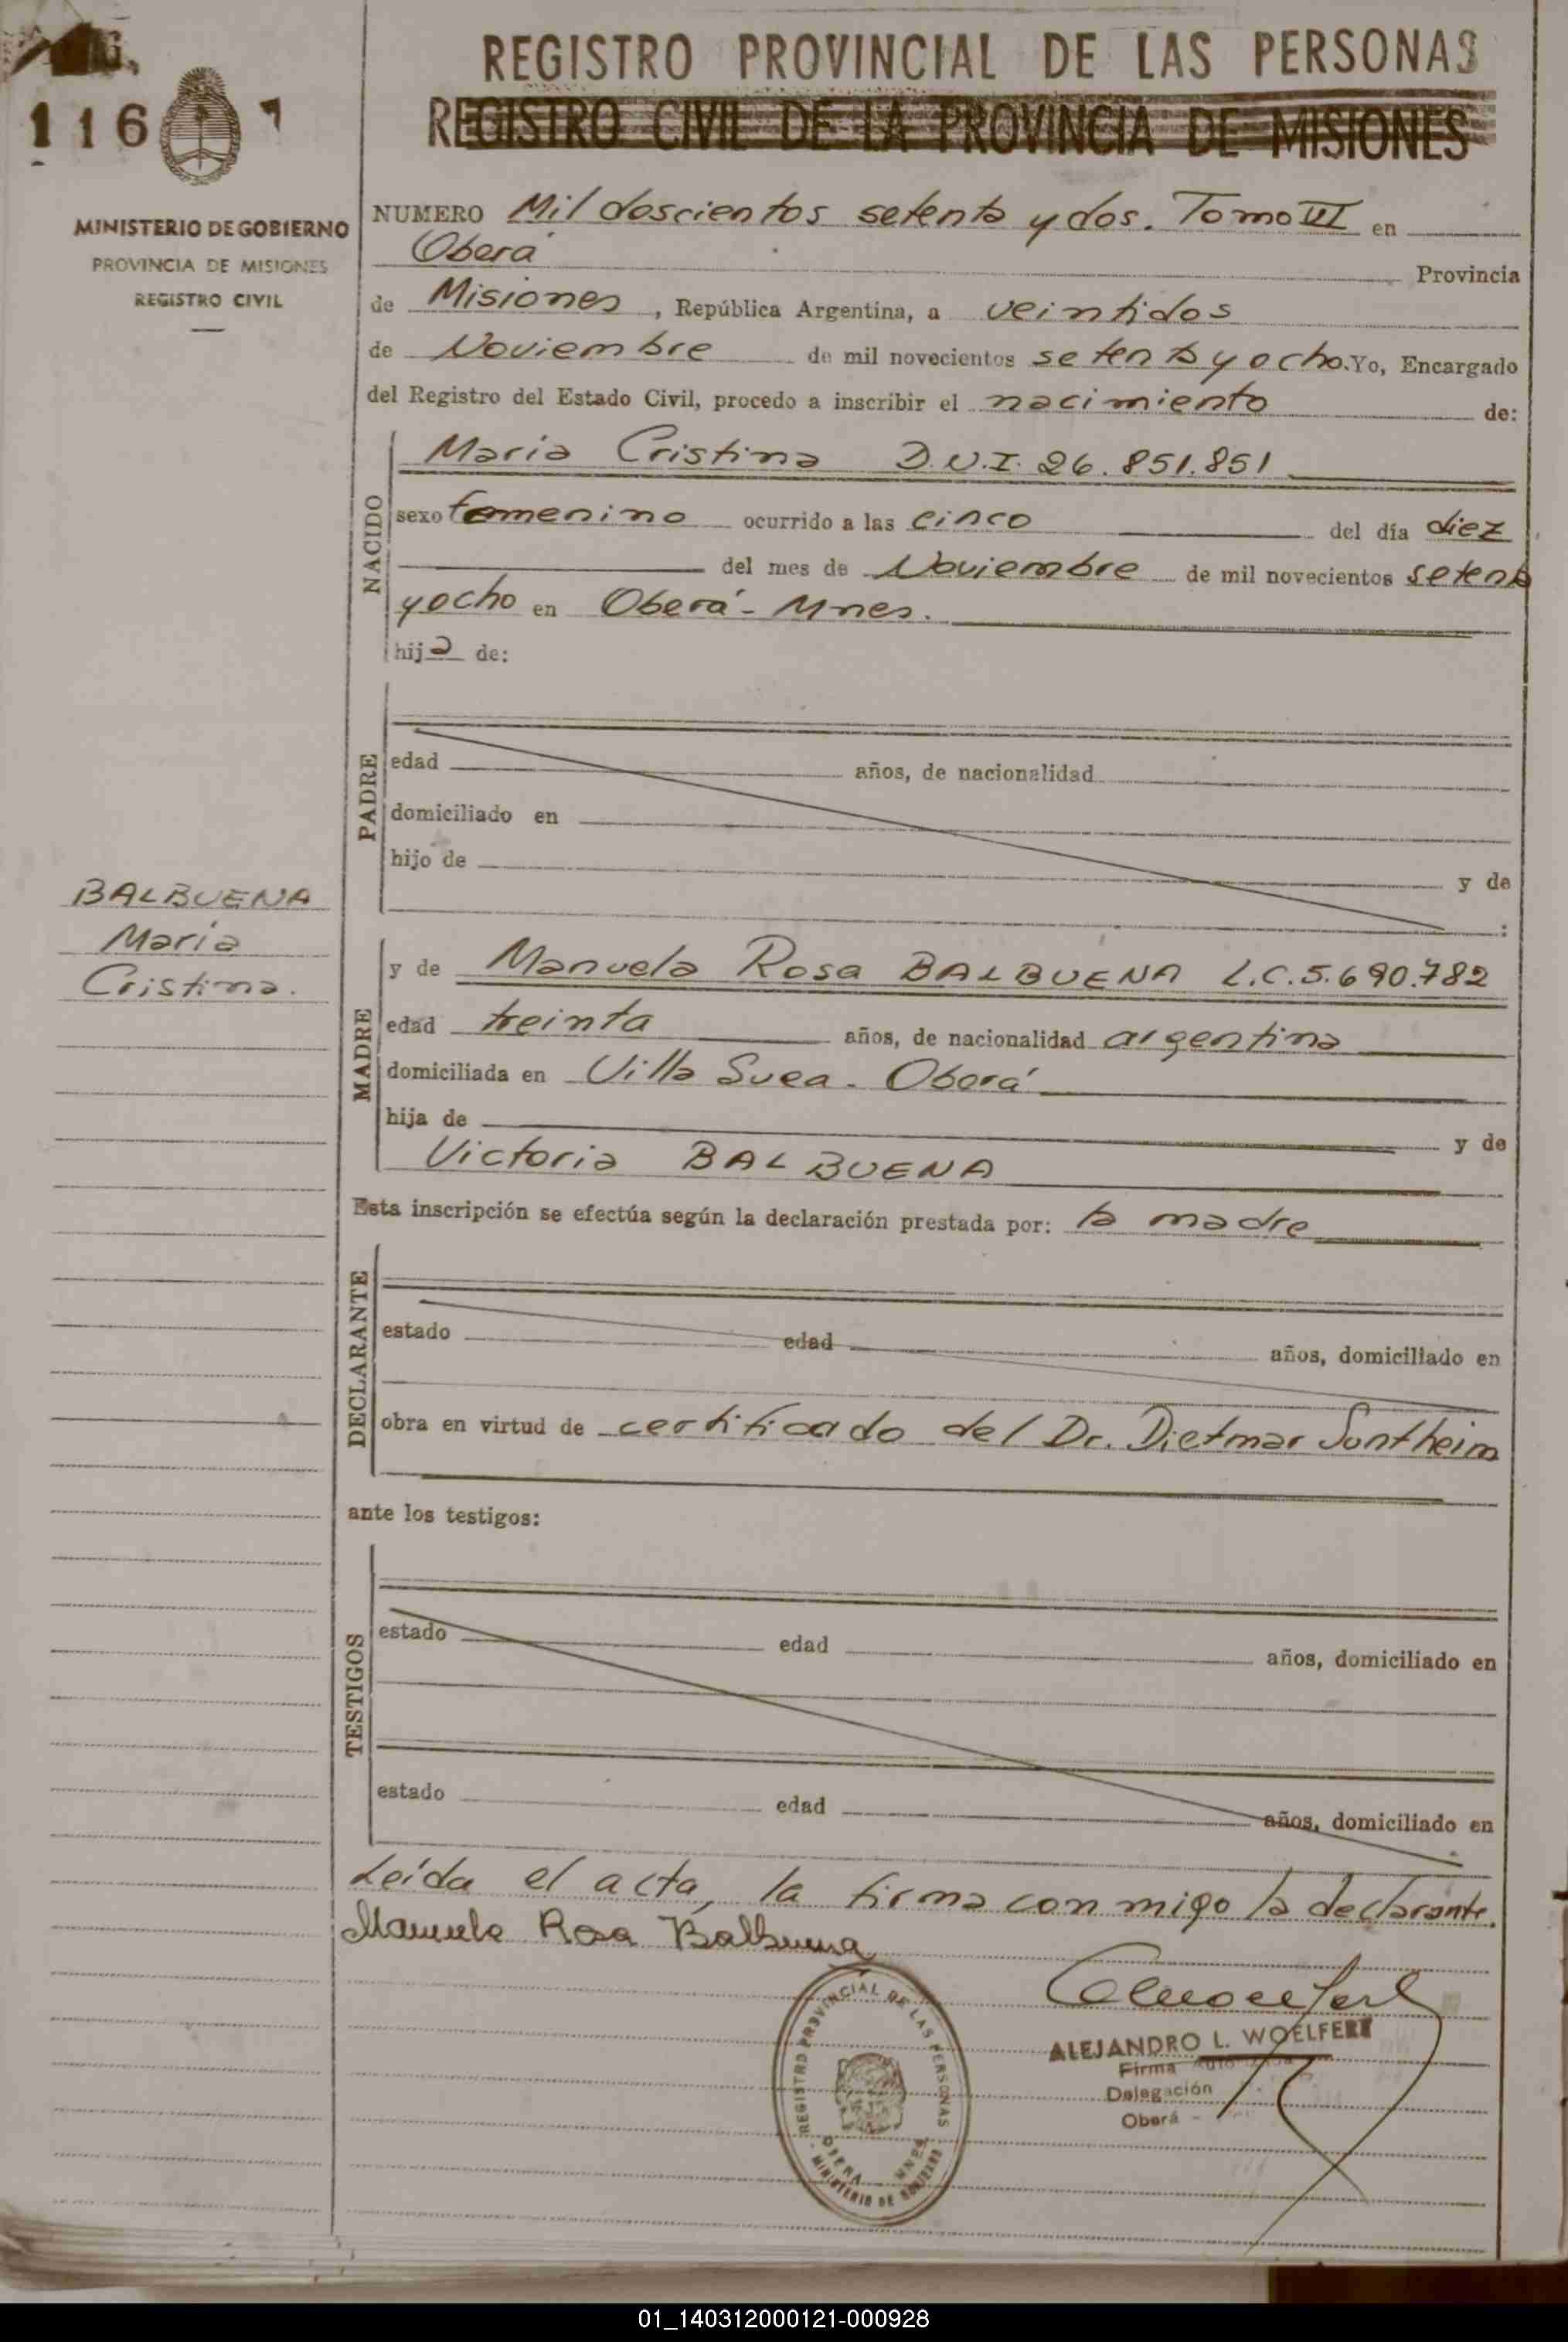 REGISTRO PROVINCIAL DE LAS PERSONAS
REGISTRO CIVIL DE LA PROVINCIA DE MISIONES
116 7
MINISTERIO DE GOBIERNO
PROVINCIA DE MISIONES
REGISTRO CIVIL
NUMERO Mil doscientos setenta y dos. Tomo III en
Oberá Provincia
de Misiones, República Argentina, a veintidos
de Noviembre de mil novecientos setenta y ocho. Yo, Encargado
del Registro del Estado Civil, procedo a inscribir el nacimiento de:
NACIDO
María Cristina D.N.I. 26.851.851
sexo femenino ocurrido a las cinco del día diez
del mes de Noviembre de mil novecientos setenta
y ocho en Oberá - Mnes.
hija de:
PADRE
edad años, de nacionalidad
domiciliado en
hijo de y de
:
BALBUENA
María
Cristina.
MADRE
y de Manuela Rosa BALBUENA L.C. 5.690.782
edad treinta años, de nacionalidad argentina
domiciliada en Villa Svea - Oberá
hija de y de
Victoria BALBUENA
Esta inscripción se efectúa según la declaración prestada por: la madre
DECLARANTE
estado edad años, domiciliado en
obra en virtud de certificado del Dr. Dietmar Sontheim
ante los testigos:
TESTIGOS
estado edad años, domiciliado en
estado edad años, domiciliado en
Leída el acta, la firma conmigo la declarante.
Manuela Rosa Balbuena
REGISTRO PROVINCIAL DE LAS PERSONAS
OBERA MNES
MINISTERIO DE GOBIERNO
ALEJANDRO L. WOELFERT
Firma Autorizada
Delegación
Oberá -
01_140312000121-000928